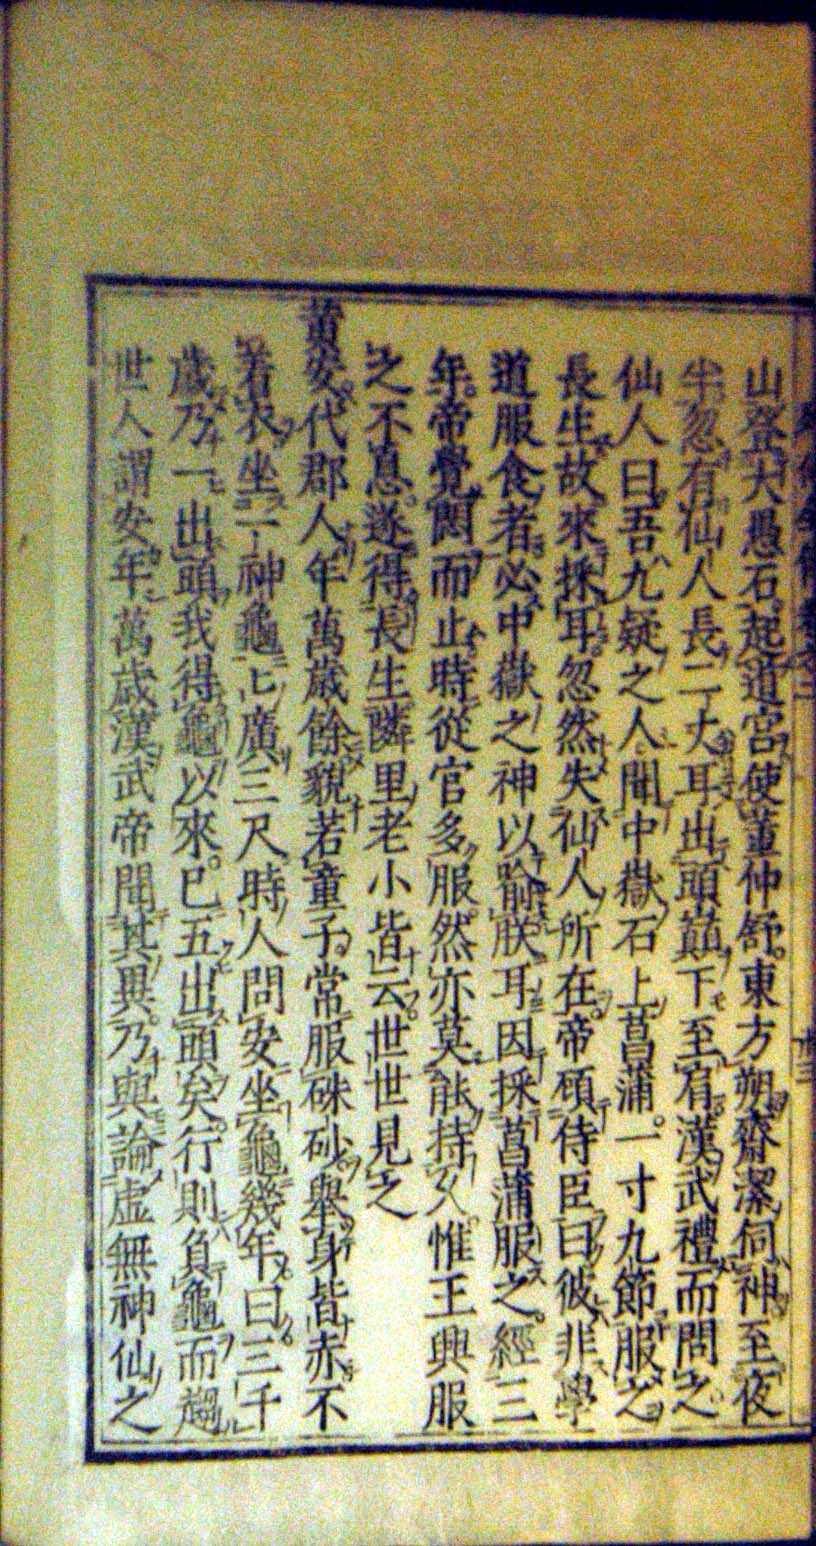 山登大愚石起道宮使董仲舒東方朔齋潔伺神至夜
半忽有仙人長二丈耳出頭巔下至肩漢武禮而問之
仙人曰吾九疑之人聞中嶽石上菖蒲一寸九節服之
長生故來採耳忽然失仙人所在帝顧侍臣曰彼非學
道服食者必中嶽之神以喻朕耳因採菖蒲服之經三
年帝覺悶而止時從官多服然亦莫能持久惟王興服
之不息遂得長生隣里老小皆云世世見之
黄安代郡人年萬歲餘貌若童子常服硃砂舉身皆赤不
着衣坐一神龜匕廣三尺時人問安坐龜幾年曰三千
歲乃一出頭我得龜以來已五出頭矣行則負龜而趨
世人謂安年萬歲漢武帝聞其異乃與論虛無神仙之